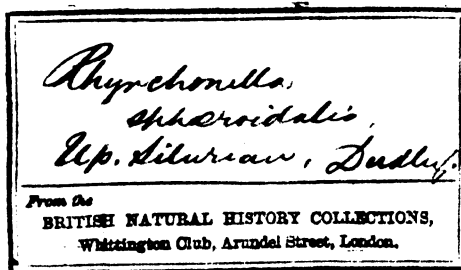 Rhynchonella,
sphæroidalis,
Up. Silurian, Dudley.
From the
BRITISH NATURAL HISTORY COLLECTIONS,
Whittington Club, Arundel Street, London.